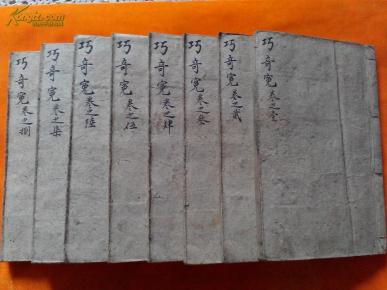 巧奇冤卷之壹
巧奇冤卷之貳
巧奇冤卷之叁
巧奇冤卷之肆
巧奇冤卷之伍
巧奇冤卷之陸
巧奇冤卷之柒
巧奇冤卷之捌